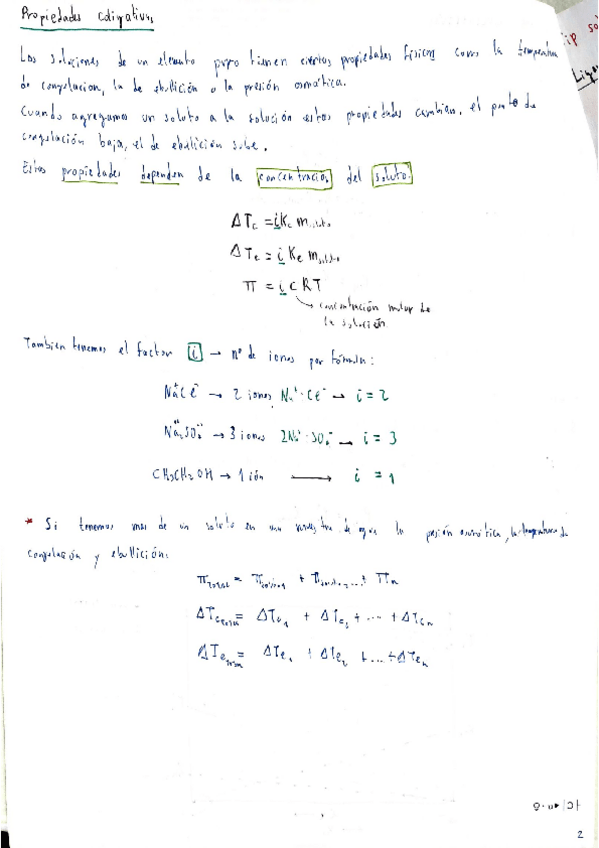 Propiedades coligativas
Las soluciones de un elemento puro tienen ciertas propiedades físicas como la temperatura
de congelacion, la de ebullición o la presión osmótica.
Cuando agregamos un soluto a la solución estas propiedades cambian, el punto de
congelación baja, el de ebullición sube.
Estas propiedades dependen de la concentración del soluto.
ΔTc = i Kc m soluto
ΔTe = i Ke m soluto
π = i c R T
concentración molar de
la solución
Tambien tenemos el factor i → nº de iones por fórmula:
Na⁺Cl⁻ → 2 iones Na⁺·Cl⁻ → i = 2
→ 3 iones → i = 3
CH3CH2OH → 1 ión → i = 1
* Si tenemos mas de un soluto en una muestra de agua la presión osmótica, la temperatura de
congelación y ebullición:
ΔTc = ΔTc1 + ΔTc2 + ... + ΔTcn
ΔTe = ΔTe1 + ΔTe2 + ... + ΔTen
2